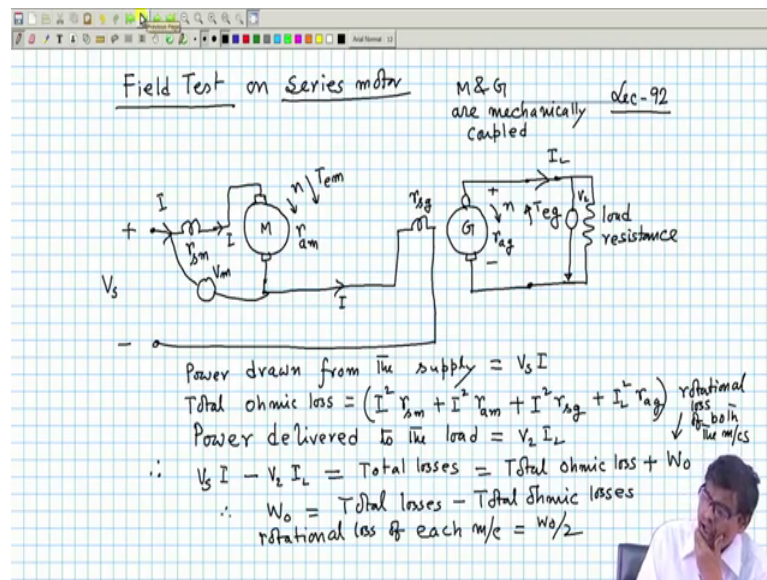 Previous Page
Arial Normal 12
Field Test on Series motor
M & G
are mechanically
coupled
Lec-92
I
I
r_sm
M
n
T_em
r_am
V_m
+
V_s
-
I
r_sg
G
+
-
n
r_ag
T_eg
I_L
V_2
load
resistance
Power drawn from the supply = V_s I
Total ohmic loss = (I² r_sm + I² r_am + I² r_sg + I_L² r_ag)
rotational
loss
of both
the m/cs
Power delivered to the load = V_2 I_L
∴ V_s I - V_2 I_L = Total losses = Total ohmic loss + W_0
∴ W_0 = Total losses - Total ohmic losses
rotational loss of each m/c = W_0/2